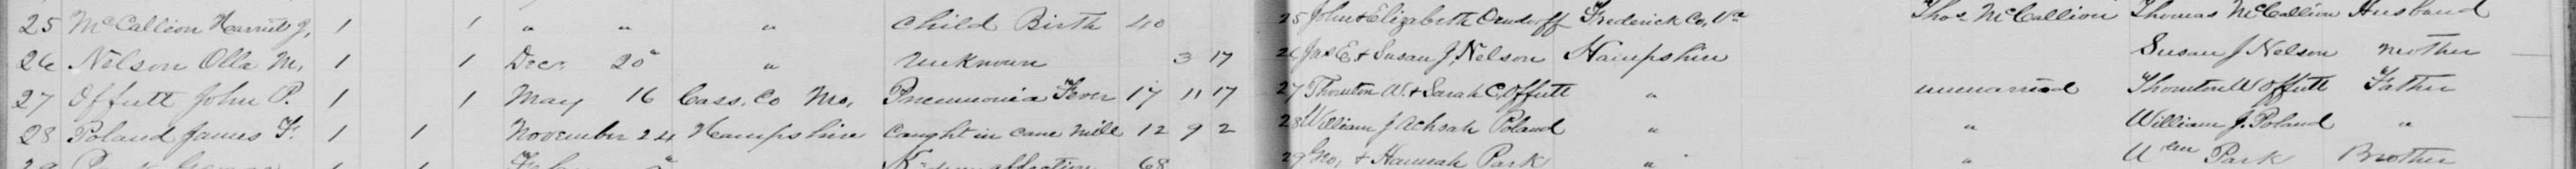 25 McCallion Harriet J, 1 1 " " " Child Birth 40 25 John & Elizabeth Orndorff Frederick Co, Va Thos McCallion Thomas McCallion Husband
26 Nelson Olla M, 1 1 Dec. 20" " Unknown 3 17 26 Jas E. & Susan J, Nelson Hampshire Susan J Nelson Mother
27 Offutt John P. 1 1 May 16 Cass. Co Mo, Pneumonia Fever 17 11 17 27 Thornton W. & Sarah C, Offutt " unmarried Thornton W Offutt Father
28 Poland James F. 1 1 November 24 Hampshire Caught in Cane Mill 12 9 2 28 William J Achsah Poland " " William J. Poland "
29 George 1 1 affection 68 29 Geo, & Hannah Park " " Park Brother